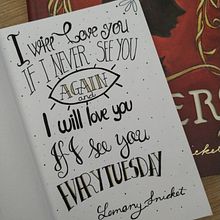 I will love you
IF I NEVER SEE YOU
AGAIN
and
I will love you
If I see you
EVERY TUESDAY
Lemony Snicket